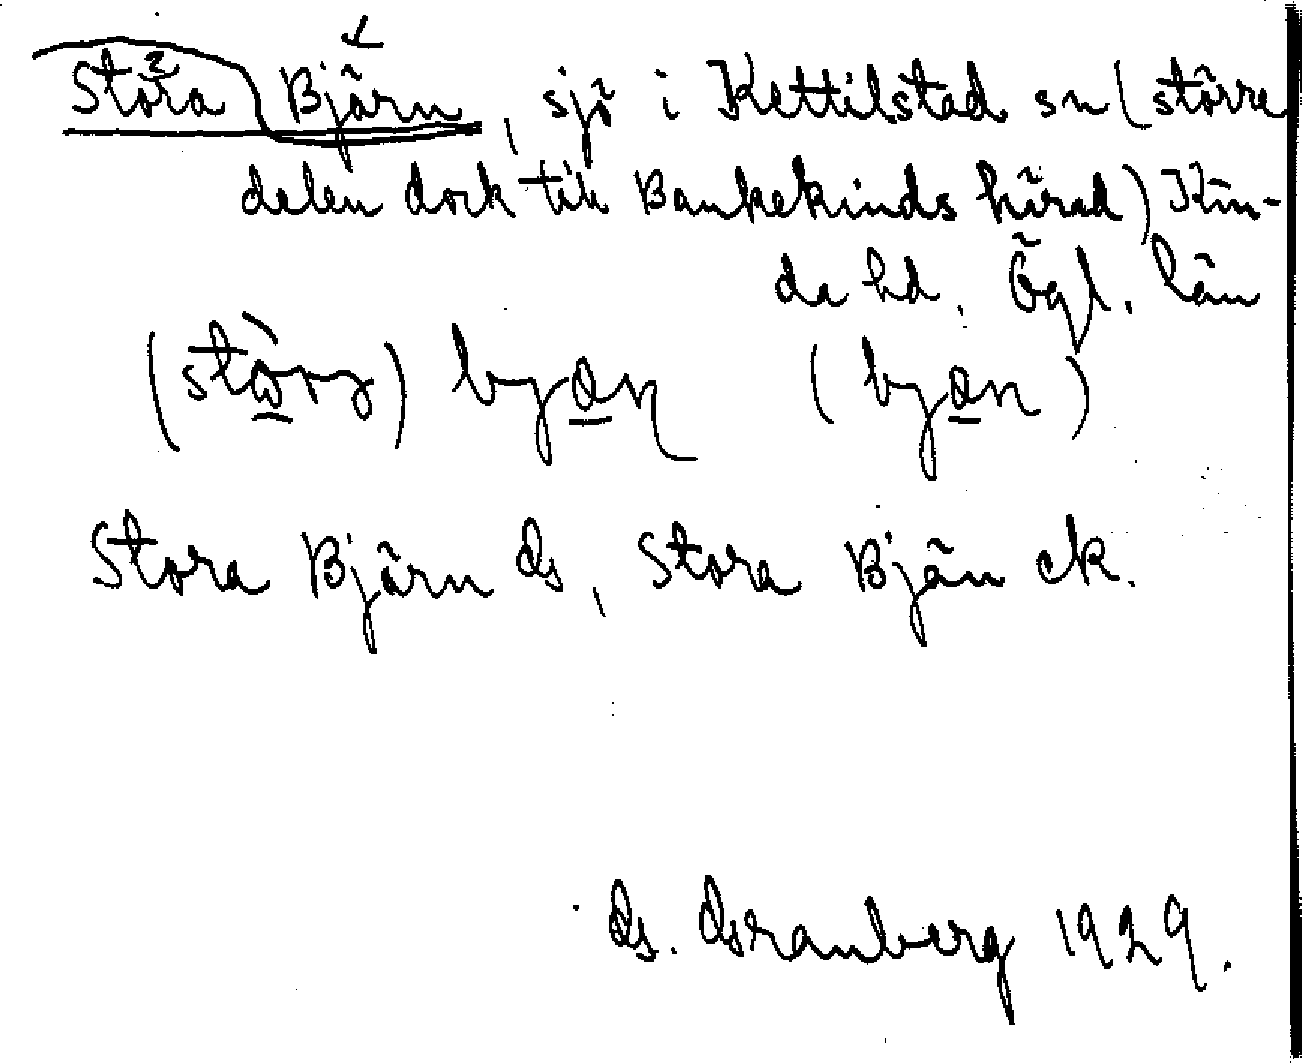 Stora Björn, sjö i Kettilstad sn (större
delen dock till Bankekinds härad) Kin-
da hd. Ögl. län
Stora Björn Gs, Stora Bjän ek.
G. Granberg 1929.